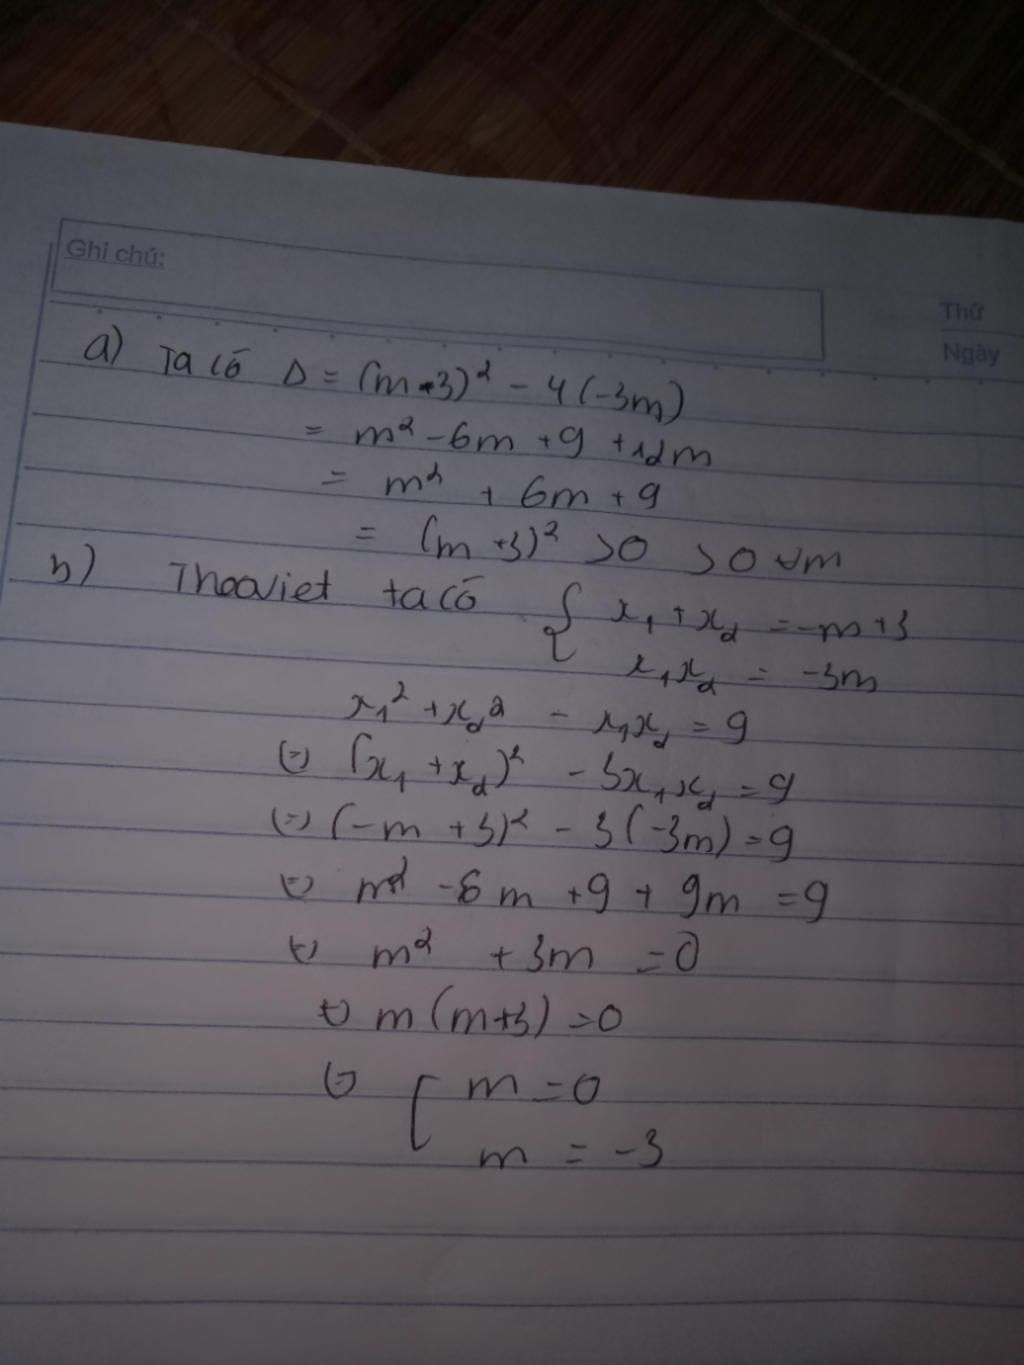 Ghi chú:
Thứ
Ngày
a) Ta có Δ = (m-3)² - 4(-3m)
= m² - 6m + 9 + 12m
= m² + 6m + 9
= (m+3)² >0 >0 ∀m
b) Theo Viet ta có { x₁ + x₂ = -m+3
x₁x₂ = -3m
x₁² + x₂² - x₁x₂ = 9
(=) (x₁ + x₂)² - 3x₁x₂ = 9
(=) (-m + 3)² - 3(-3m) = 9
(=) m² - 6m + 9 + 9m = 9
(=) m² + 3m = 0
(=) m(m+3) = 0
(=) [ m = 0
m = -3